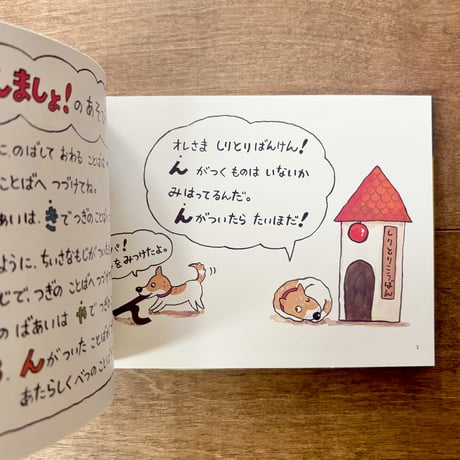 しましょ!のあそび
に、のばして おわる ことばは、
ことばへ つづけてね。
あいは、きでつぎのことばへ
ように、ちいさなもじがついたら
じで、つぎの ことばへつづ
の ばあいは やでつぎ
3. んがついた ことばが
あたらしく べつのことば
パパ!
をみつけたよ。
オレさま しりとりばんけん!
んがつくものは いないか
みはってるんだ。
んがついたら たいほだ!
ん
しりとりこうばん
3